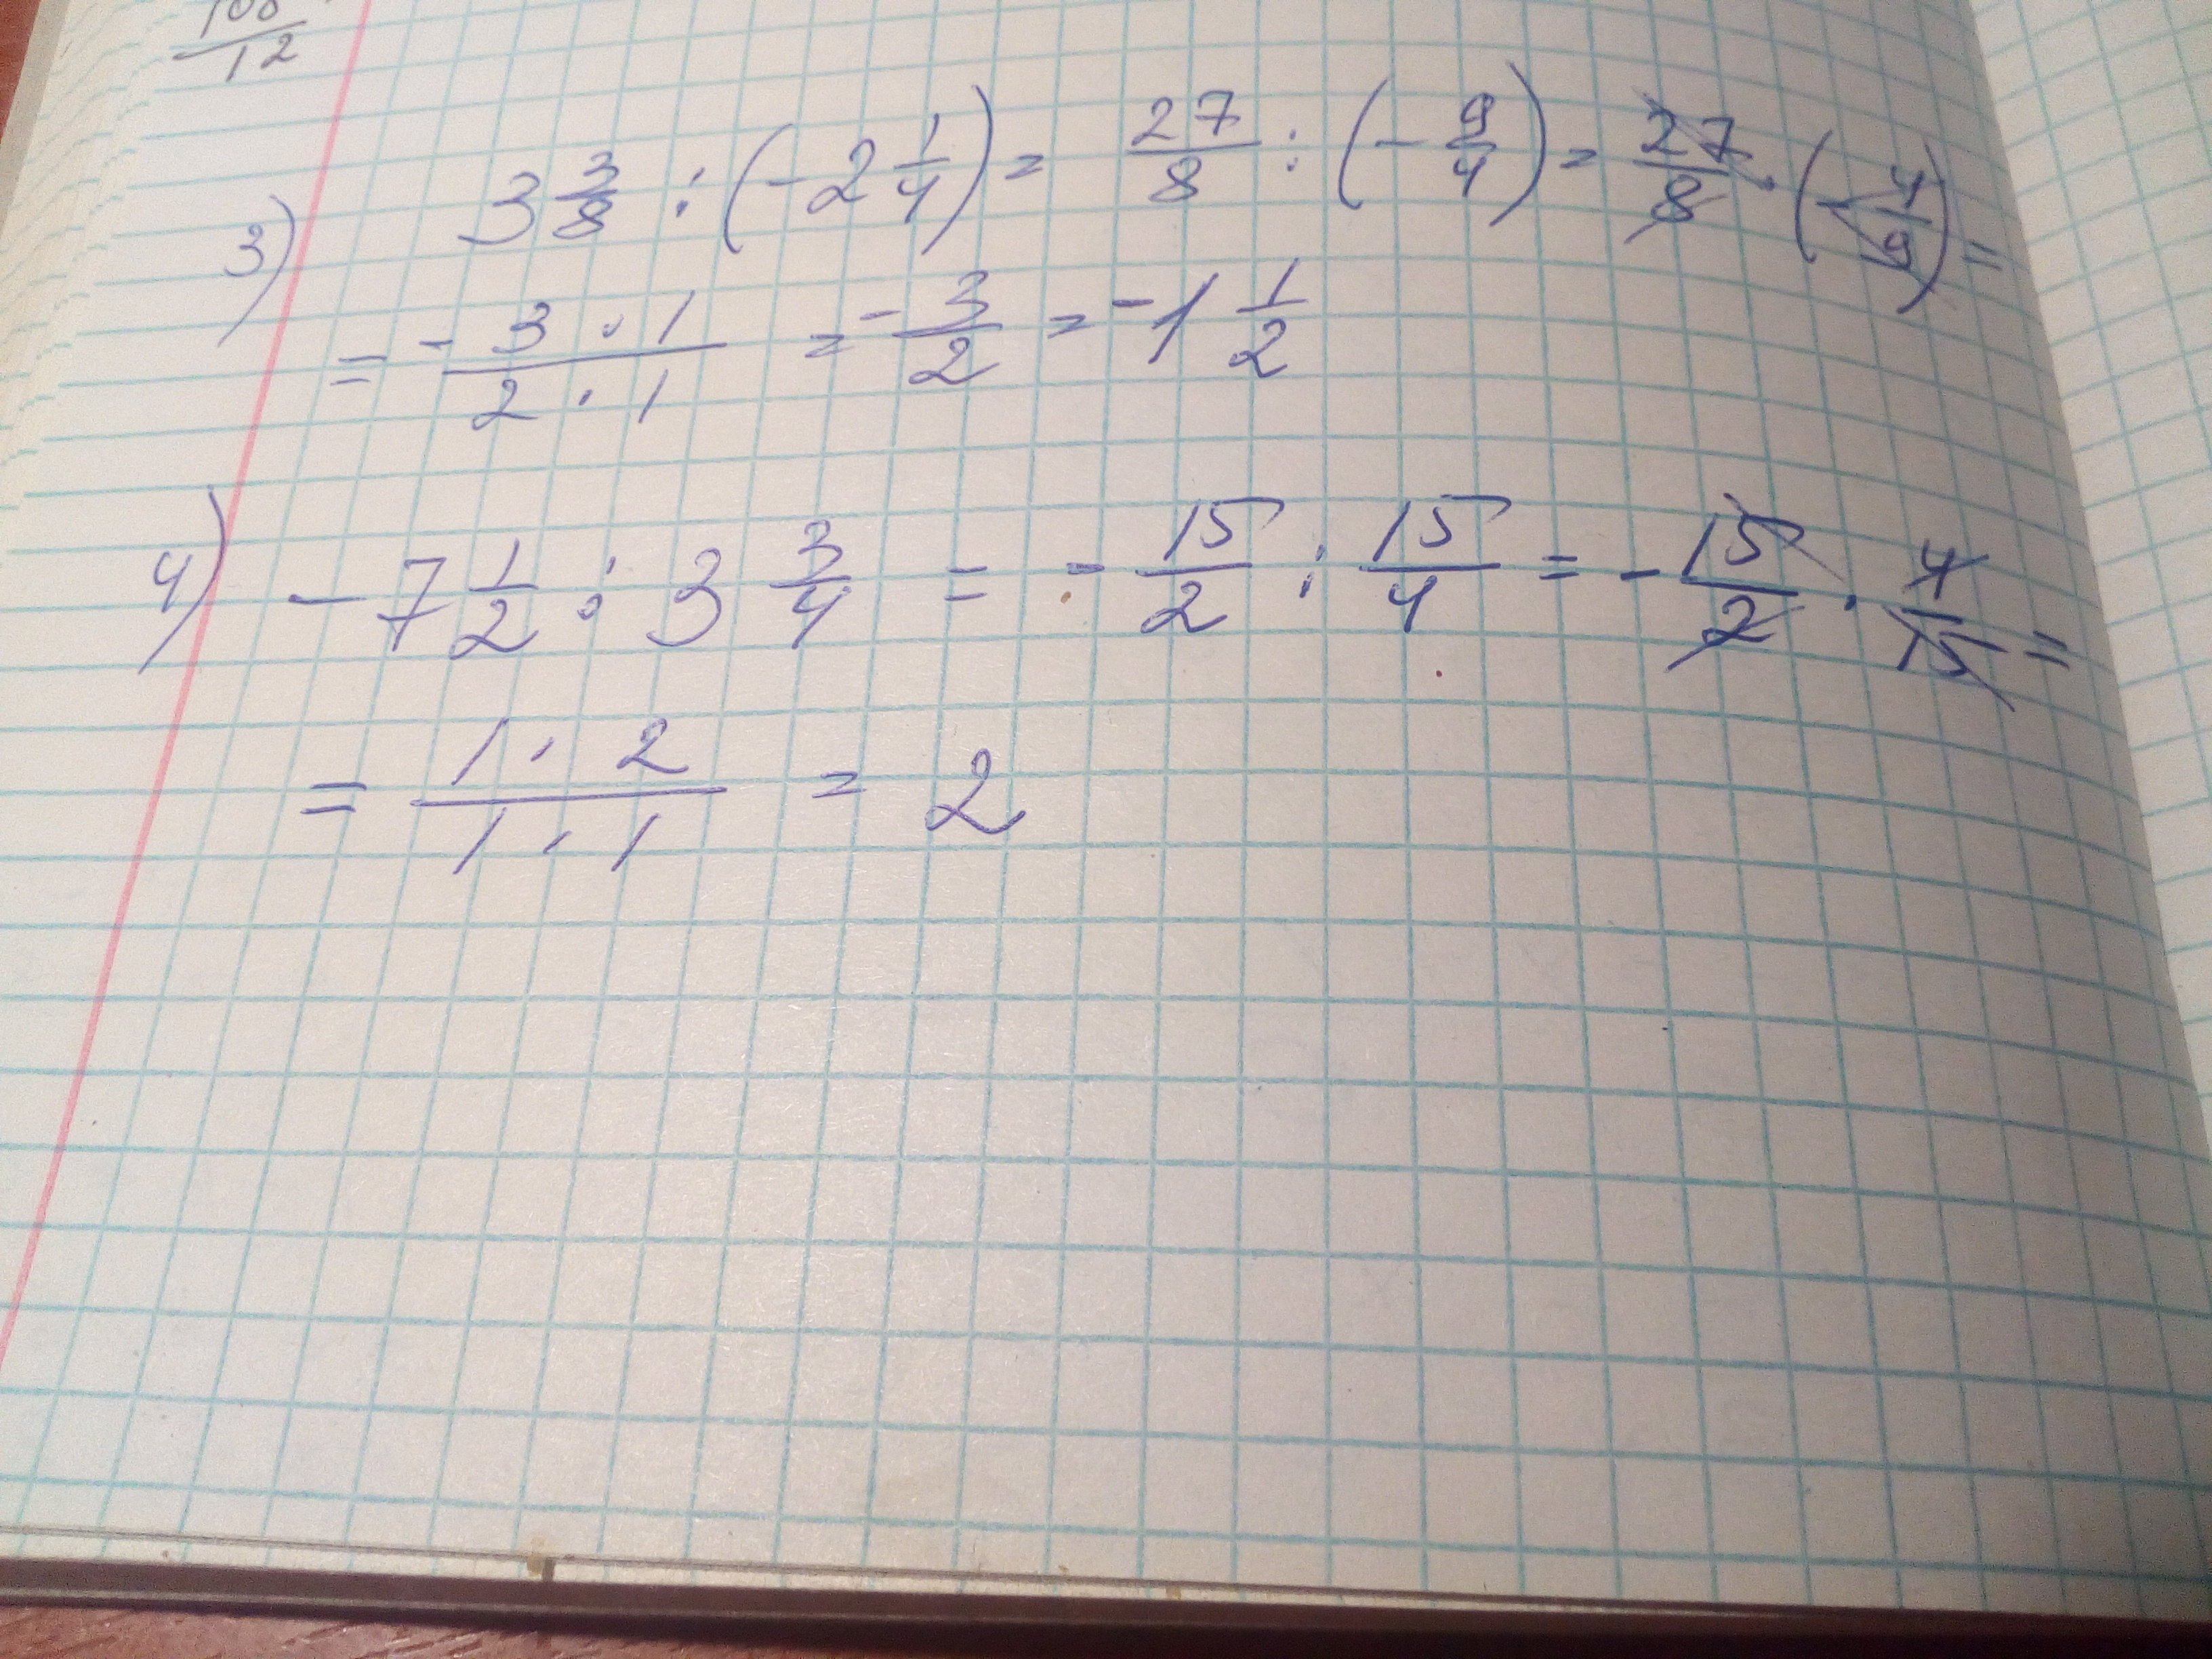 100/12
3) 3 3/8 : (-2 1/4) = 27/8 : (-9/4) = 27/8 · (-4/9) =
= -3·1/2·1 = -3/2 = -1 1/2
4) -7 1/2 : 3 3/4 = -15/2 : 15/4 = -15/2 · 4/15 =
= 1·2/1·1 = 2